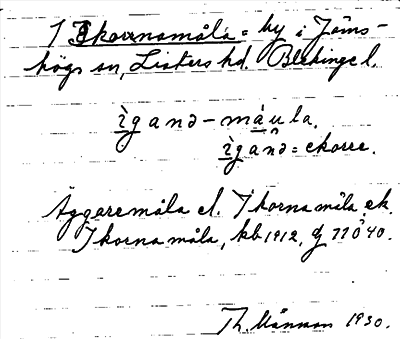 1 Ikornamåla = by i Jäms-
högs sn, Listers hd. Blekinge l.
ìganə-måula.
ìgânə = ekorre.
Äggaremåla el. Ikornamåla, ek.
Ikornamåla, kb 1912, 11 0 40.
Th. Månsson 1930.